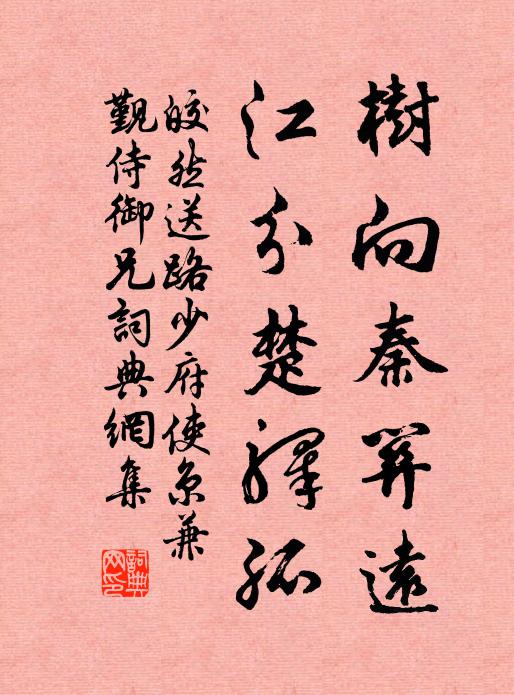 樹向秦關遠
江分楚驛孤
皎然送路少府使京兼
覲侍御兄詞典網集
詞典
网印